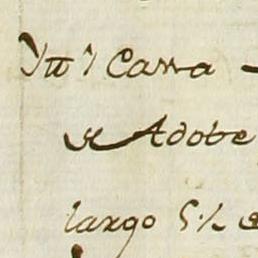 Ytt 1 Cassa
de Adobe
largo 5 1/2